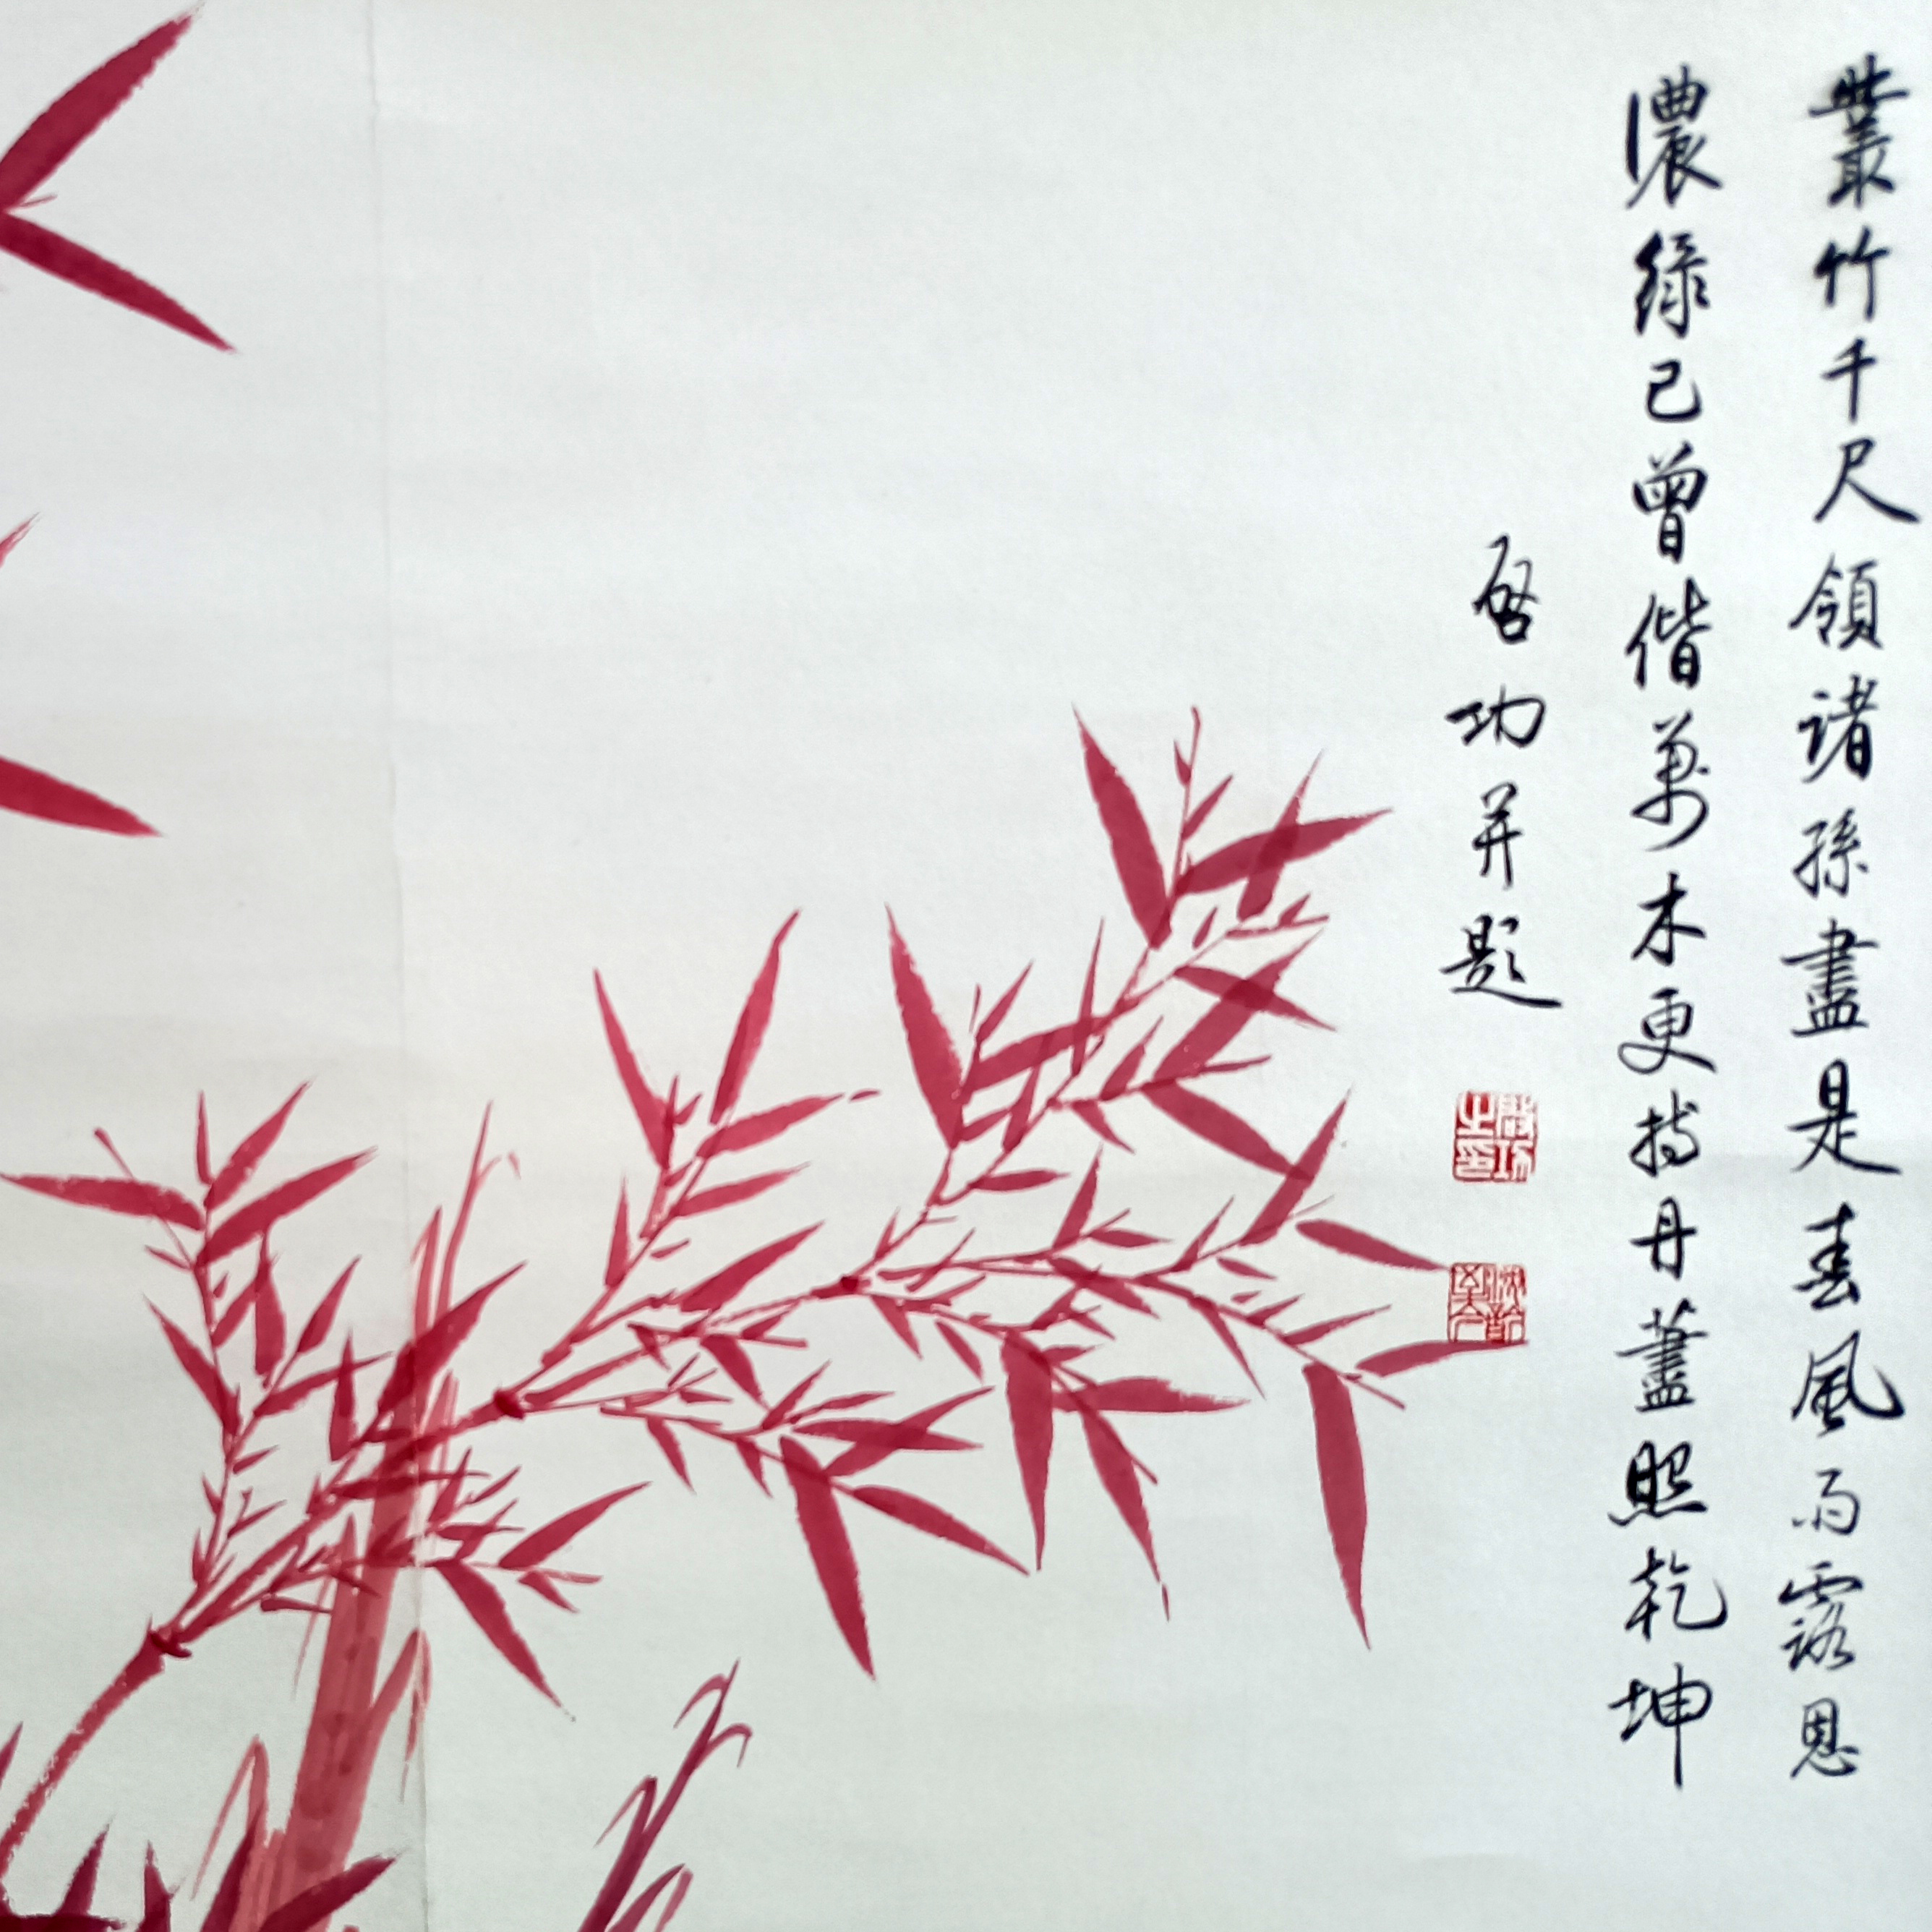 叢竹千尺領諸孫盡是春風雨露恩
濃綠已曾偕萬木更持丹藎照乾坤
啓功并題
啟功之印